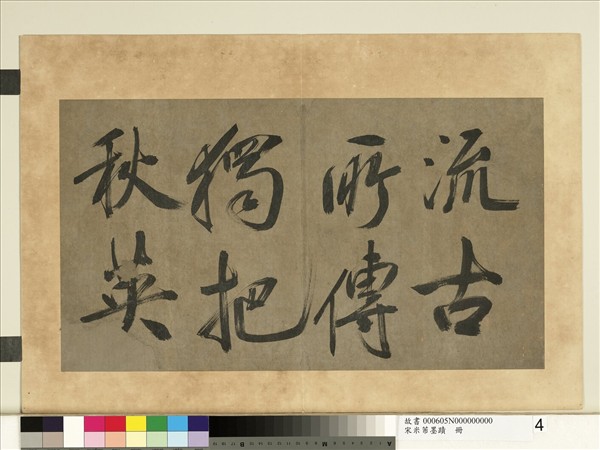 流古
所傳
獨把
秋英
故書 000605N000000000
宋米芾墨蹟 冊
4